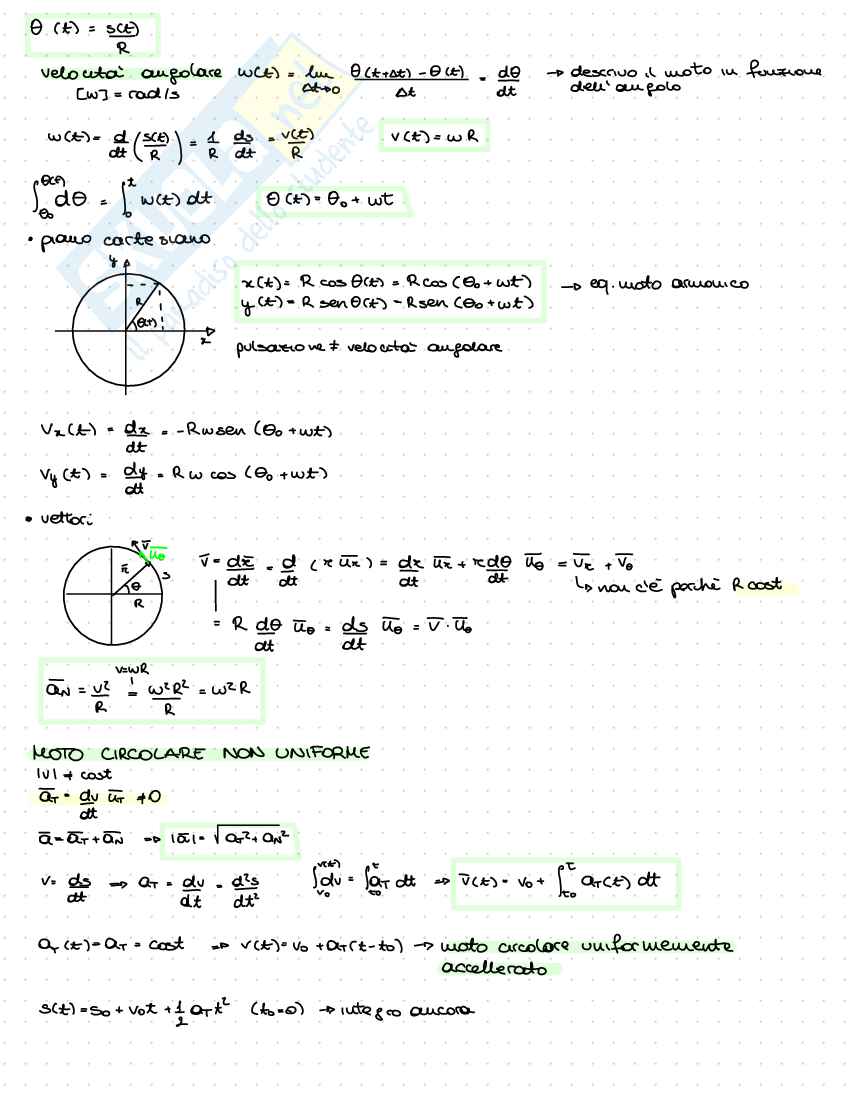 θ (t) = s(t)/R
velocità angolare w(t) = lim Δt→0 θ(t+Δt) - θ(t)/Δt = dθ/dt → descrivo il moto in funzione dell'angolo
[w] = rad/s
w(t) = d/dt (s(t)/R) = 1/R ds/dt = v(t)/R v(t) = wR
∫θ₀^θ(t) dθ = ∫₀^t w(t) dt θ(t) = θ₀ + wt
• piano cartesiano
y
R
θ(t)
x
x(t) = R cos θ(t) = R cos (θ₀ + wt) → eq. moto armonico
y(t) = R sen θ(t) - R sen (θ₀ + wt)
pulsazione ≠ velocità angolare
Vx(t) = dx/dt = -Rw sen (θ₀ + wt)
Vy(t) = dy/dt = R w cos (θ₀ + wt)
• vettori
v̄ ūθ
r̄ θ s
R
v̄ = dr̄/dt = d/dt (r ūr) = dr/dt ūr + r dθ/dt ūθ = v̄r + v̄θ
↳ non c'è perché R cost
= R dθ/dt ūθ = ds/dt ūθ = v̄ · ūθ
v=wR
āN = v²/R = w²R²/R = w²R
MOTO CIRCOLARE NON UNIFORME
|v| ≠ cost
āT = dv/dt ūT ≠ 0
ā = āT + āN → |ā| = √aT² + aN²
v = ds/dt → aT = dv/dt = d²s/dt² ∫v₀^v(t) dv = ∫t₀^t aT dt → v̄(t) = v₀ + ∫t₀^t aT(t) dt
aT(t) = aT = cost → v(t) = v₀ + aT(t-t₀) → moto circolare uniformemente accellerato
s(t) = s₀ + v₀t + 1/2 aT t² (t₀=0) → integro ancora
SKUOLA.net
il paradiso dello studente